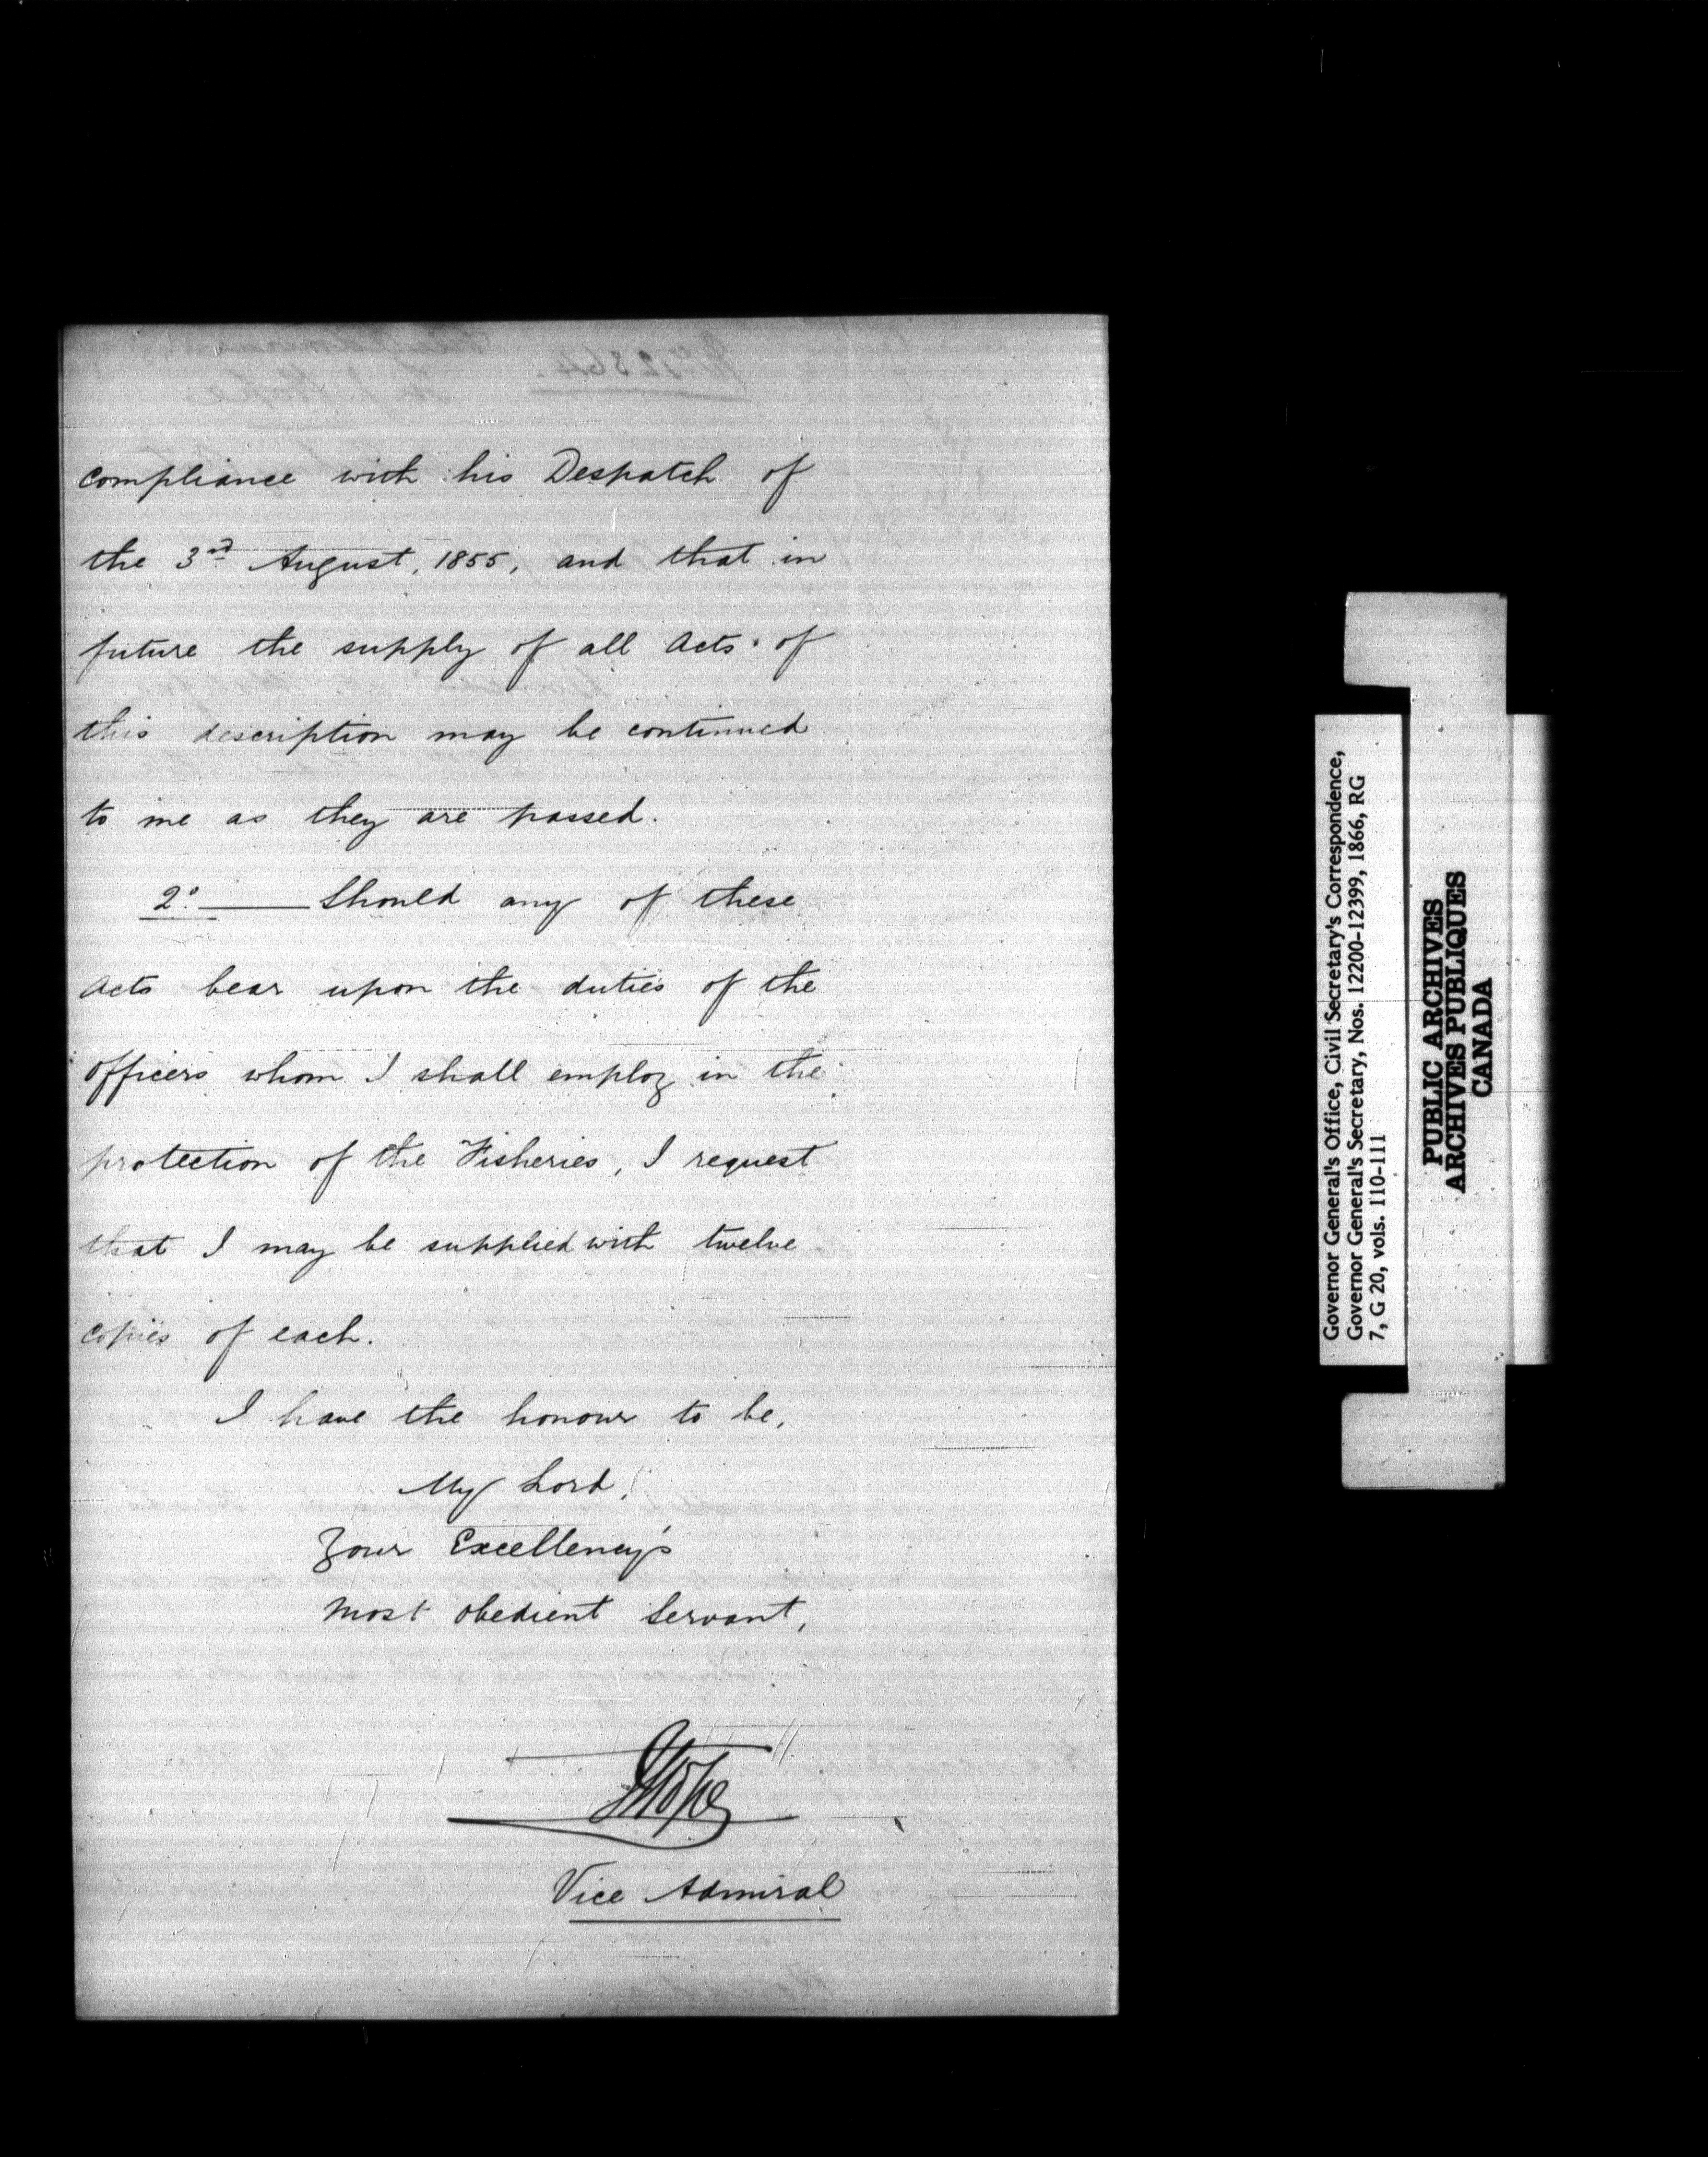 compliance with his Despatch of
the 3rd August, 1855, and that in
future the supply of all Acts of
this description may be continued
to me as they are passed.
2o. Should any of these
Acts bear upon the duties of the
Officers whom I shall employ in the
protection of the Fisheries, I request
that I may be supplied with twelve
copies of each.
I have the honour to be,
My Lord,
Your Excellency's
Most obedient Servant,
J Hope
Vice Admiral
Governor General's Office, Civil Secretary's Correspondence,
Governor General's Secretary, Nos. 12200-12399, 1866, RG
7, G 20, vols. 110-111
PUBLIC ARCHIVES
ARCHIVES PUBLIQUES
CANADA